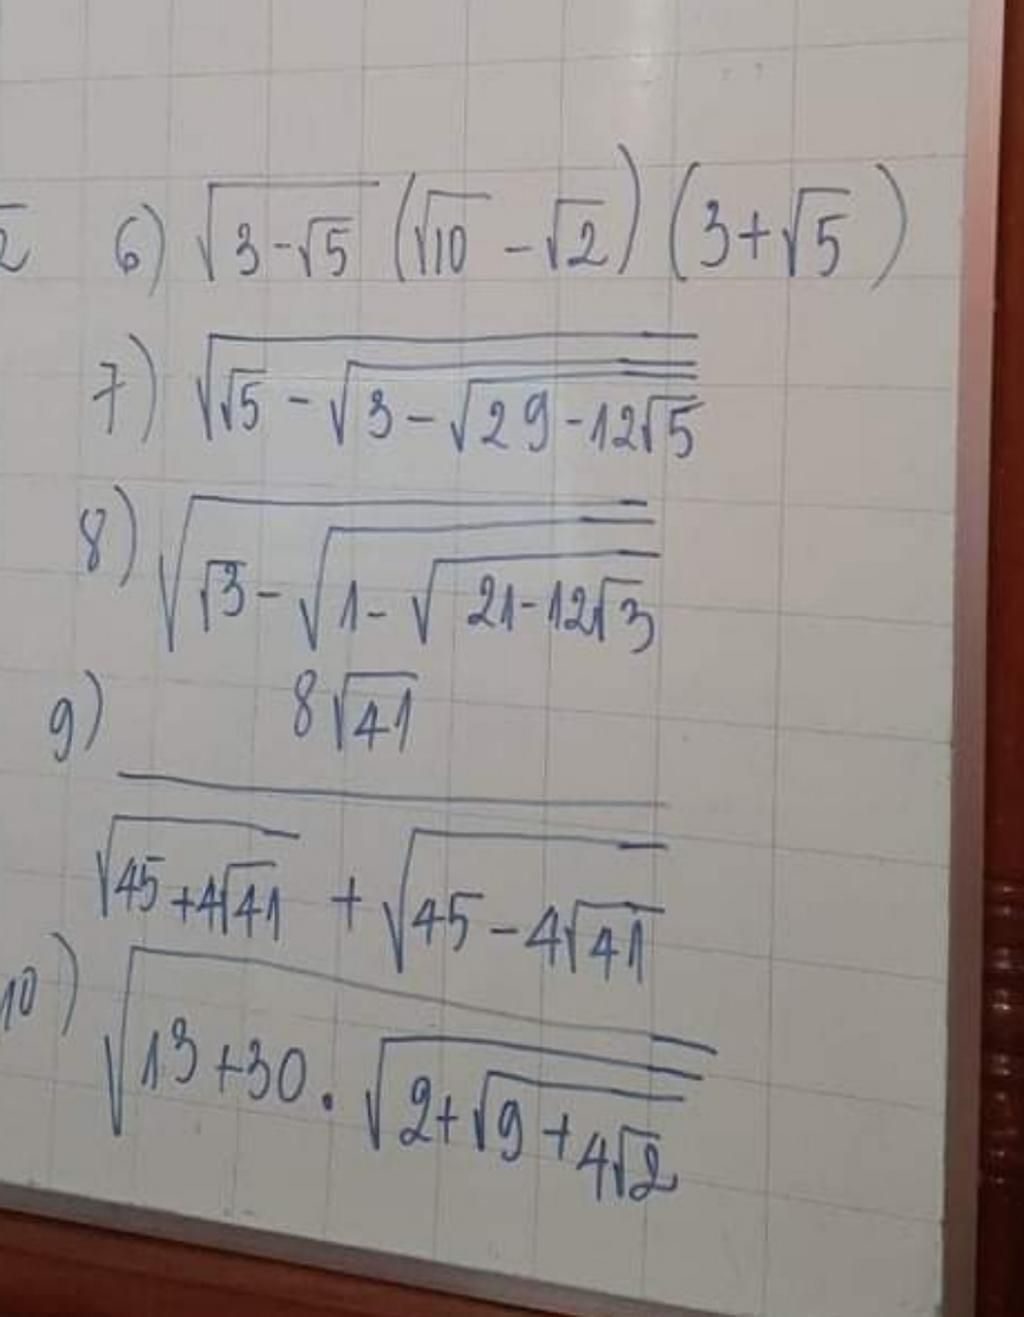 6) √(3-√5) (√10 - √2) (3+√5)
7) √(√5 - √(3 - √(29-12√5)))
8) √(√3 - √(1 - √(21-12√3)))
9) 8√41
√(45+4√41) + √(45-4√41)
10) √(13+30.√(2+√(9+4√2)))